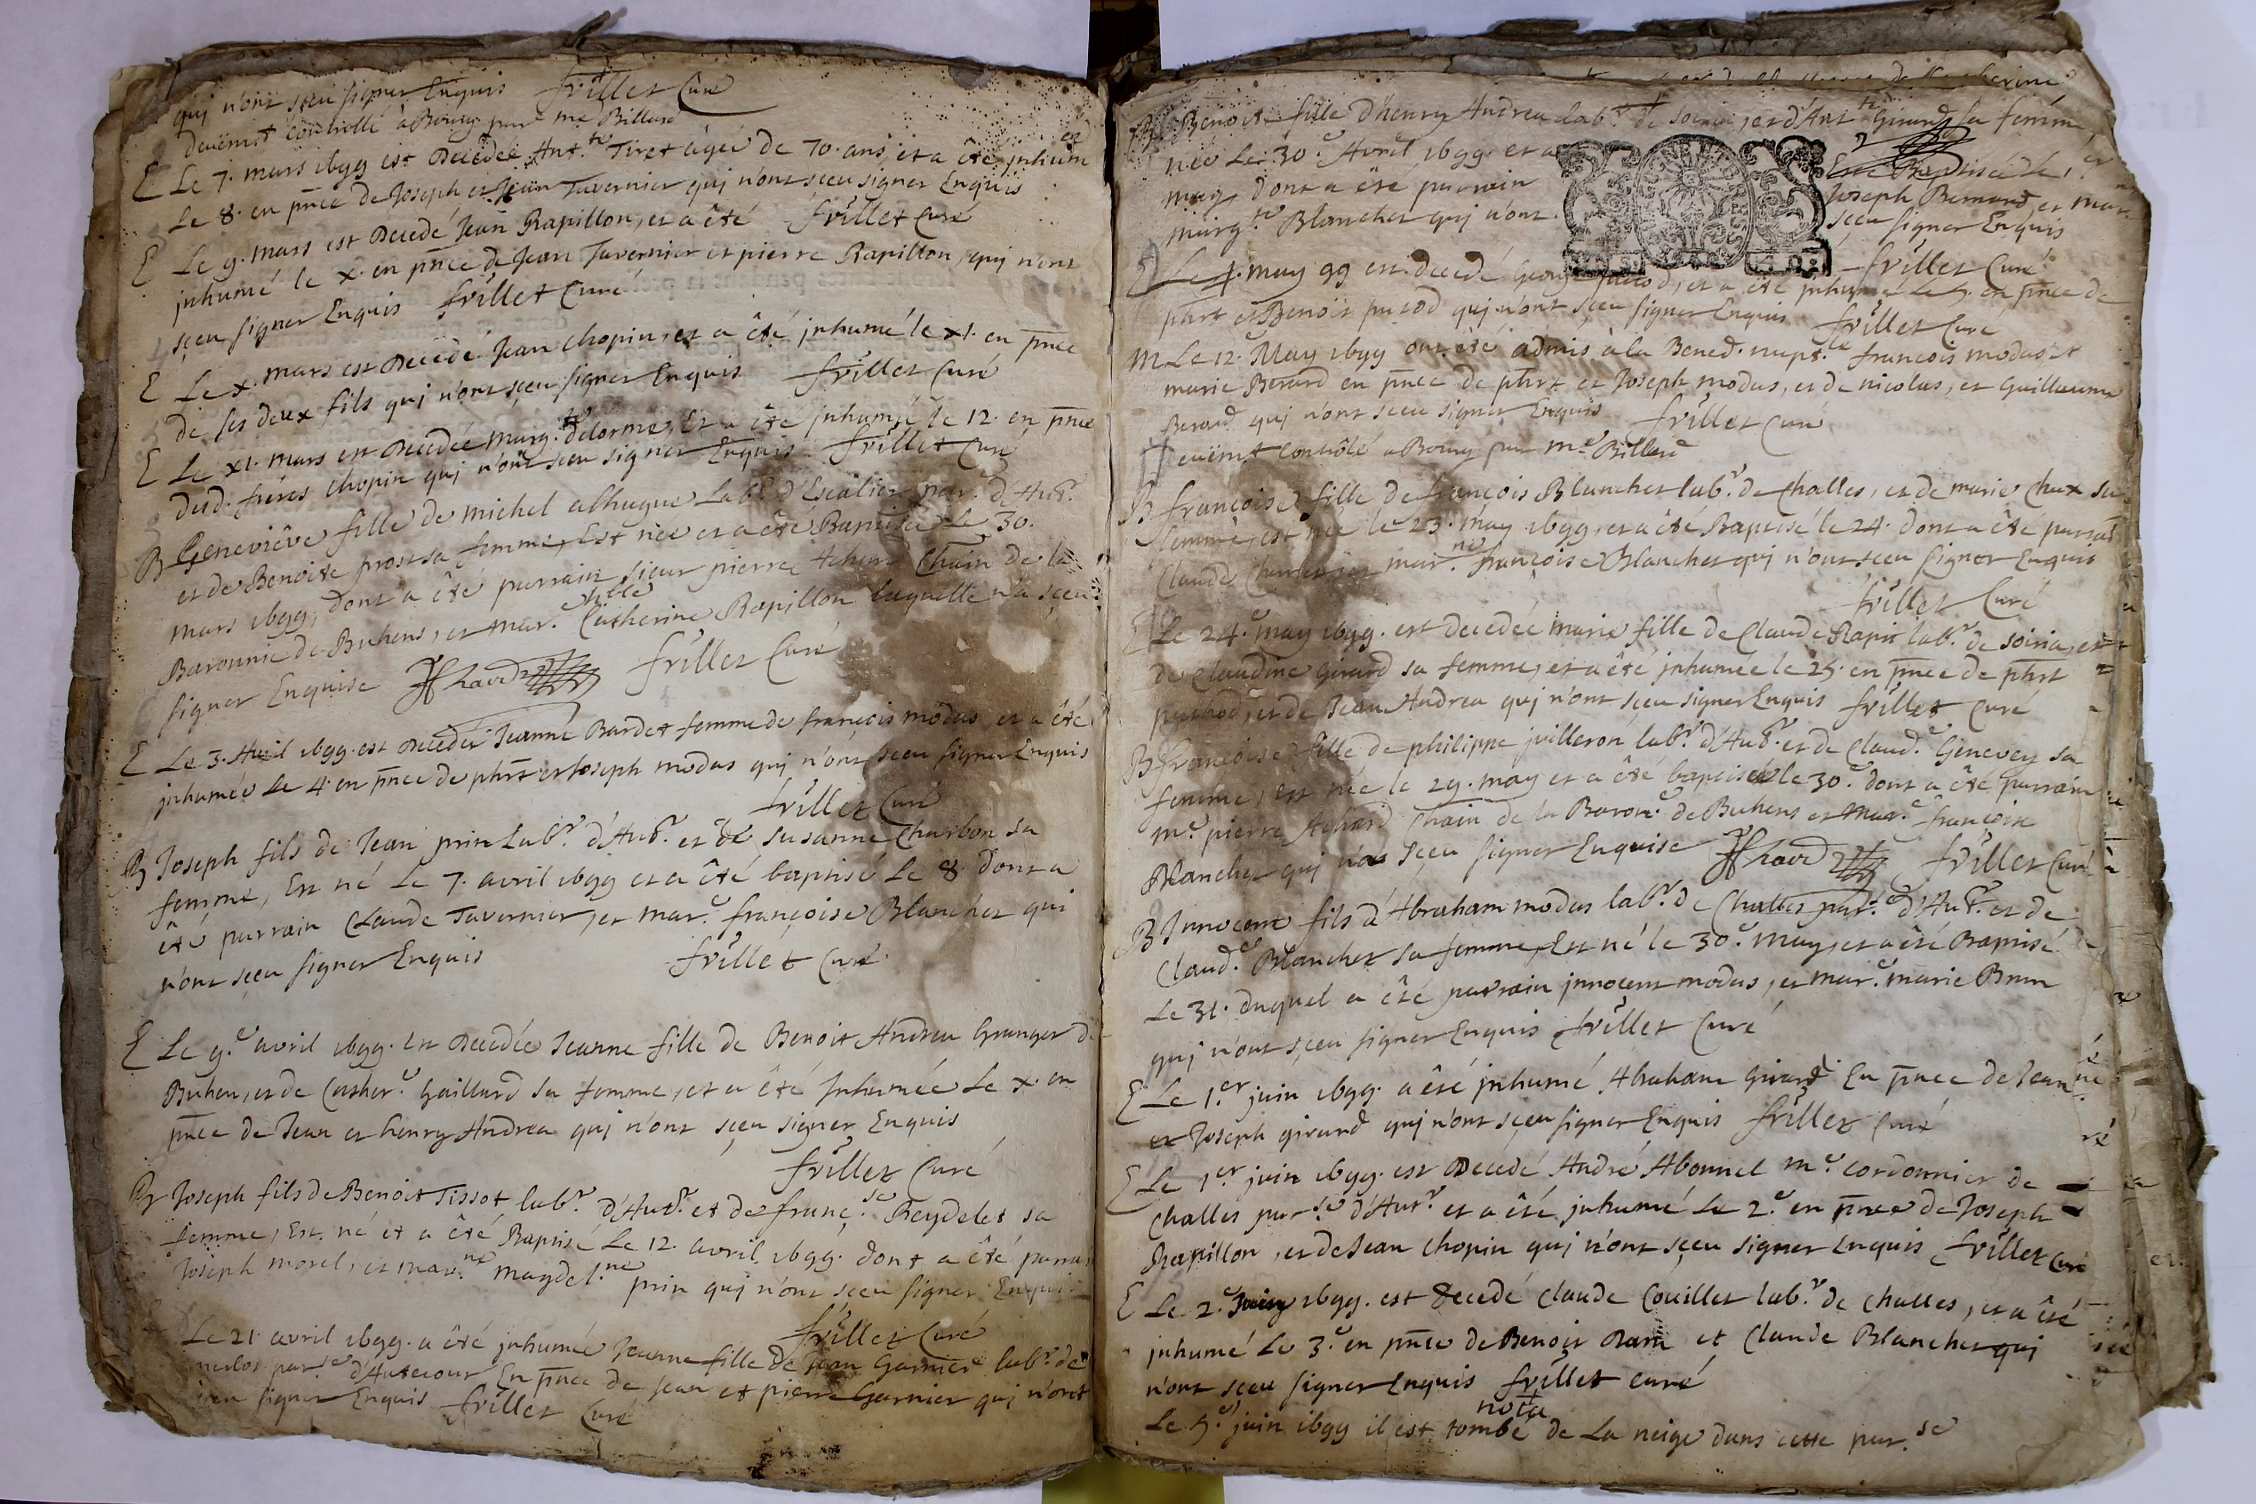 quj n'ont sçeu signer Enquis frillet Curé
deuëmt controllé à Bourg par me Billard
E Le 7. mars 1699 est Decedée Ant.te Tiret agée de 70. ans, et a êté jnhumée
Le 8. en pnce de Joseph et Jean Tavernier quj n'ont sçeu signer Enquis
frillet Curé
E Le 9. mars est Decedé Jean Rapillon, et a êté
jnhumé le x. en pnce de Jean Tavernier et pierre Rapillon, quj n'ont
sçeu signer Enquis frillet Curé
E Le x. mars est Decedé Jean Chopin, et a êté jnhumé le x1. en pnce
de ses deux fils quj n'ont sçeu signer Enquis frillet Curé
E Le x1. mars est Decedée marg.te delorme, Et a êté jnhumée le 12. en pnce
desd. fréres Chopin quj n'ont sçeu signer Enquis frillet Curé
B Geneviêve fille de michel abhugue Lab.r d'Escalier par. d'Aut.r
et de Benoite prost sa femme, Est née et a êté Baptisée Le 30.
mars 1699, dont a êté parrain sieur pierre Achard Chãin de la
Baronnie de Buhens, et mar.e Catherine Rapillon laquelle n'a sçeu
signer Enquise Achard frillet Curé
E Le 3. Avril 1699. est Decedée Jeanne Bardet femme de françois modas et a êté
jnhumée Le 4. en pnce de phrt et Joseph modas quj n'ont sçeu signer Enquis
frillet Curé
B Joseph fils de Jean prin Lab.r d'Aut.r et de Susanne Charbon sa
femme, Est né Le 7. avril 1699 et a êté baptisé Le 8. dont a
êté parrain Claude Tavernier, et mar.e françoise Blanchet qui
n'ont sçeu signer Enquis frillet Curé
E Le 9.e avril 1699. est Decedée Jeanne fille de Benoit Andrea Granger de
Buhen, et de Cather.e Gaillard sa femme, et a êté Jnhumée Le x. en
pnce de Jean et henry Andrea quj n'ont sçeu signer Enquis
frillet Curé
B Joseph fils de Benoit Tissot lab.r d'Aut.r et de franç.se Reydelet sa
femme, Est né et a êté Baptisé Le 12. avril 1699. dont a êté parrain
Joseph morel, et mar.ne magdel.ne prin quj n'ont sçeu signer Enquis
frillet Curé
Le 21. avril 1699. a êté jnhumée Jeanne fille de Jean Garnier lab.r de
merlos par.se d'Autecour En pnce de Jean et pierre Garnier quj n'ont
sçeu signer Enquis frillet Curé
B Benoite fille d'henry Andrea lab.r de soiria, et d'Ant.te Girard sa femme,
née Le 30.e Avril 1699. et a Eté Baptisée le 1.er
may, dont a êté parrain Joseph Bernard et mar.
marg.te Blanchet quj n'ont sçeu signer Enquis
frillet Curé
E Le 4. may 99 est decedé George putod, et a êté jnhumé Le 5. en pnce de
phrt et Benoit putod quj n'ont sçeu signer Enquis frillet Curé
M Le 12. May 1699 ont êté admis à la Bened. nupt.le françois modas et
marie Berard en pnce de phrt et Joseph modas, et de nicolas, et Guillaume
Berard quj n'ont sçeu signer Enquis frillet Curé
Deuëmt Contrôlé a Bourg par me Billard
B françoise fille de françois Blanchet lab.r de Challes, et de marie Chax sa
femme, est née le 23. may 1699, et a êté Baptisé le 24. dont a êté parrain
Claude mar.ne françoise Blanchet quj n'ont sçeu signer Enquis
frillet Curé
E Le 24.e may 1699. est decedée marie fille de Claude Rapin lab.r de soiria, et
de Claudine Girard sa femme, et a êté jnhumée le 25. en pnce de phrt
et de Jean Andrea quj n'ont sçeu signer Enquis frillet Curé
B françoise fille de philippe juilleron lab.r d'Aut.r et de Claud.e Genevey sa
femme, est née le 29. may et a êté baptisée le 30.e dont a êté parrain
m.e pierre Achard Chãin de la Baron.e de Buhens et mar.e françoise
Blanchet quj n'a sçeu signer Enquise Achard frillet Curé
B Jnnocent fils d'Abraham modas lab.r de Challes par.se d'Aut.r et de
Claud.e Blanchet sa femme, Est né le 30.e may, et a êté Baptisé
Le 31. duquel a êté parrain jnnocent modas, et mar.e marie Brun
quj n'ont sçeu signer Enquis frillet Curé
E Le 1.er juin 1699. a êté jnhumé Abraham Girard En pnce de Jean
et Joseph girard quj n'ont sçeu signer Enquis frillet Curé
E Le 1.er juin 1699. est Decedé André Abonnel m.e cordonnier de
Challes par.se d'Aut.r et a êté jnhumé Le 2.e en pnce de Joseph
Rapillon, et de Jean Chopin quj n'ont sçeu signer Enquis frillet Curé
E Le 2.e Juin 1699. est decedé Claude Couillet lab.r de challes, et a êté
jnhumé Le 3.e en pnce de Benoit et Claude Blanchet quj
n'ont sçeu signer Enquis frillet curé
nota
Le 5.e juin 1699 il est tombé de La neige dans cette par.se